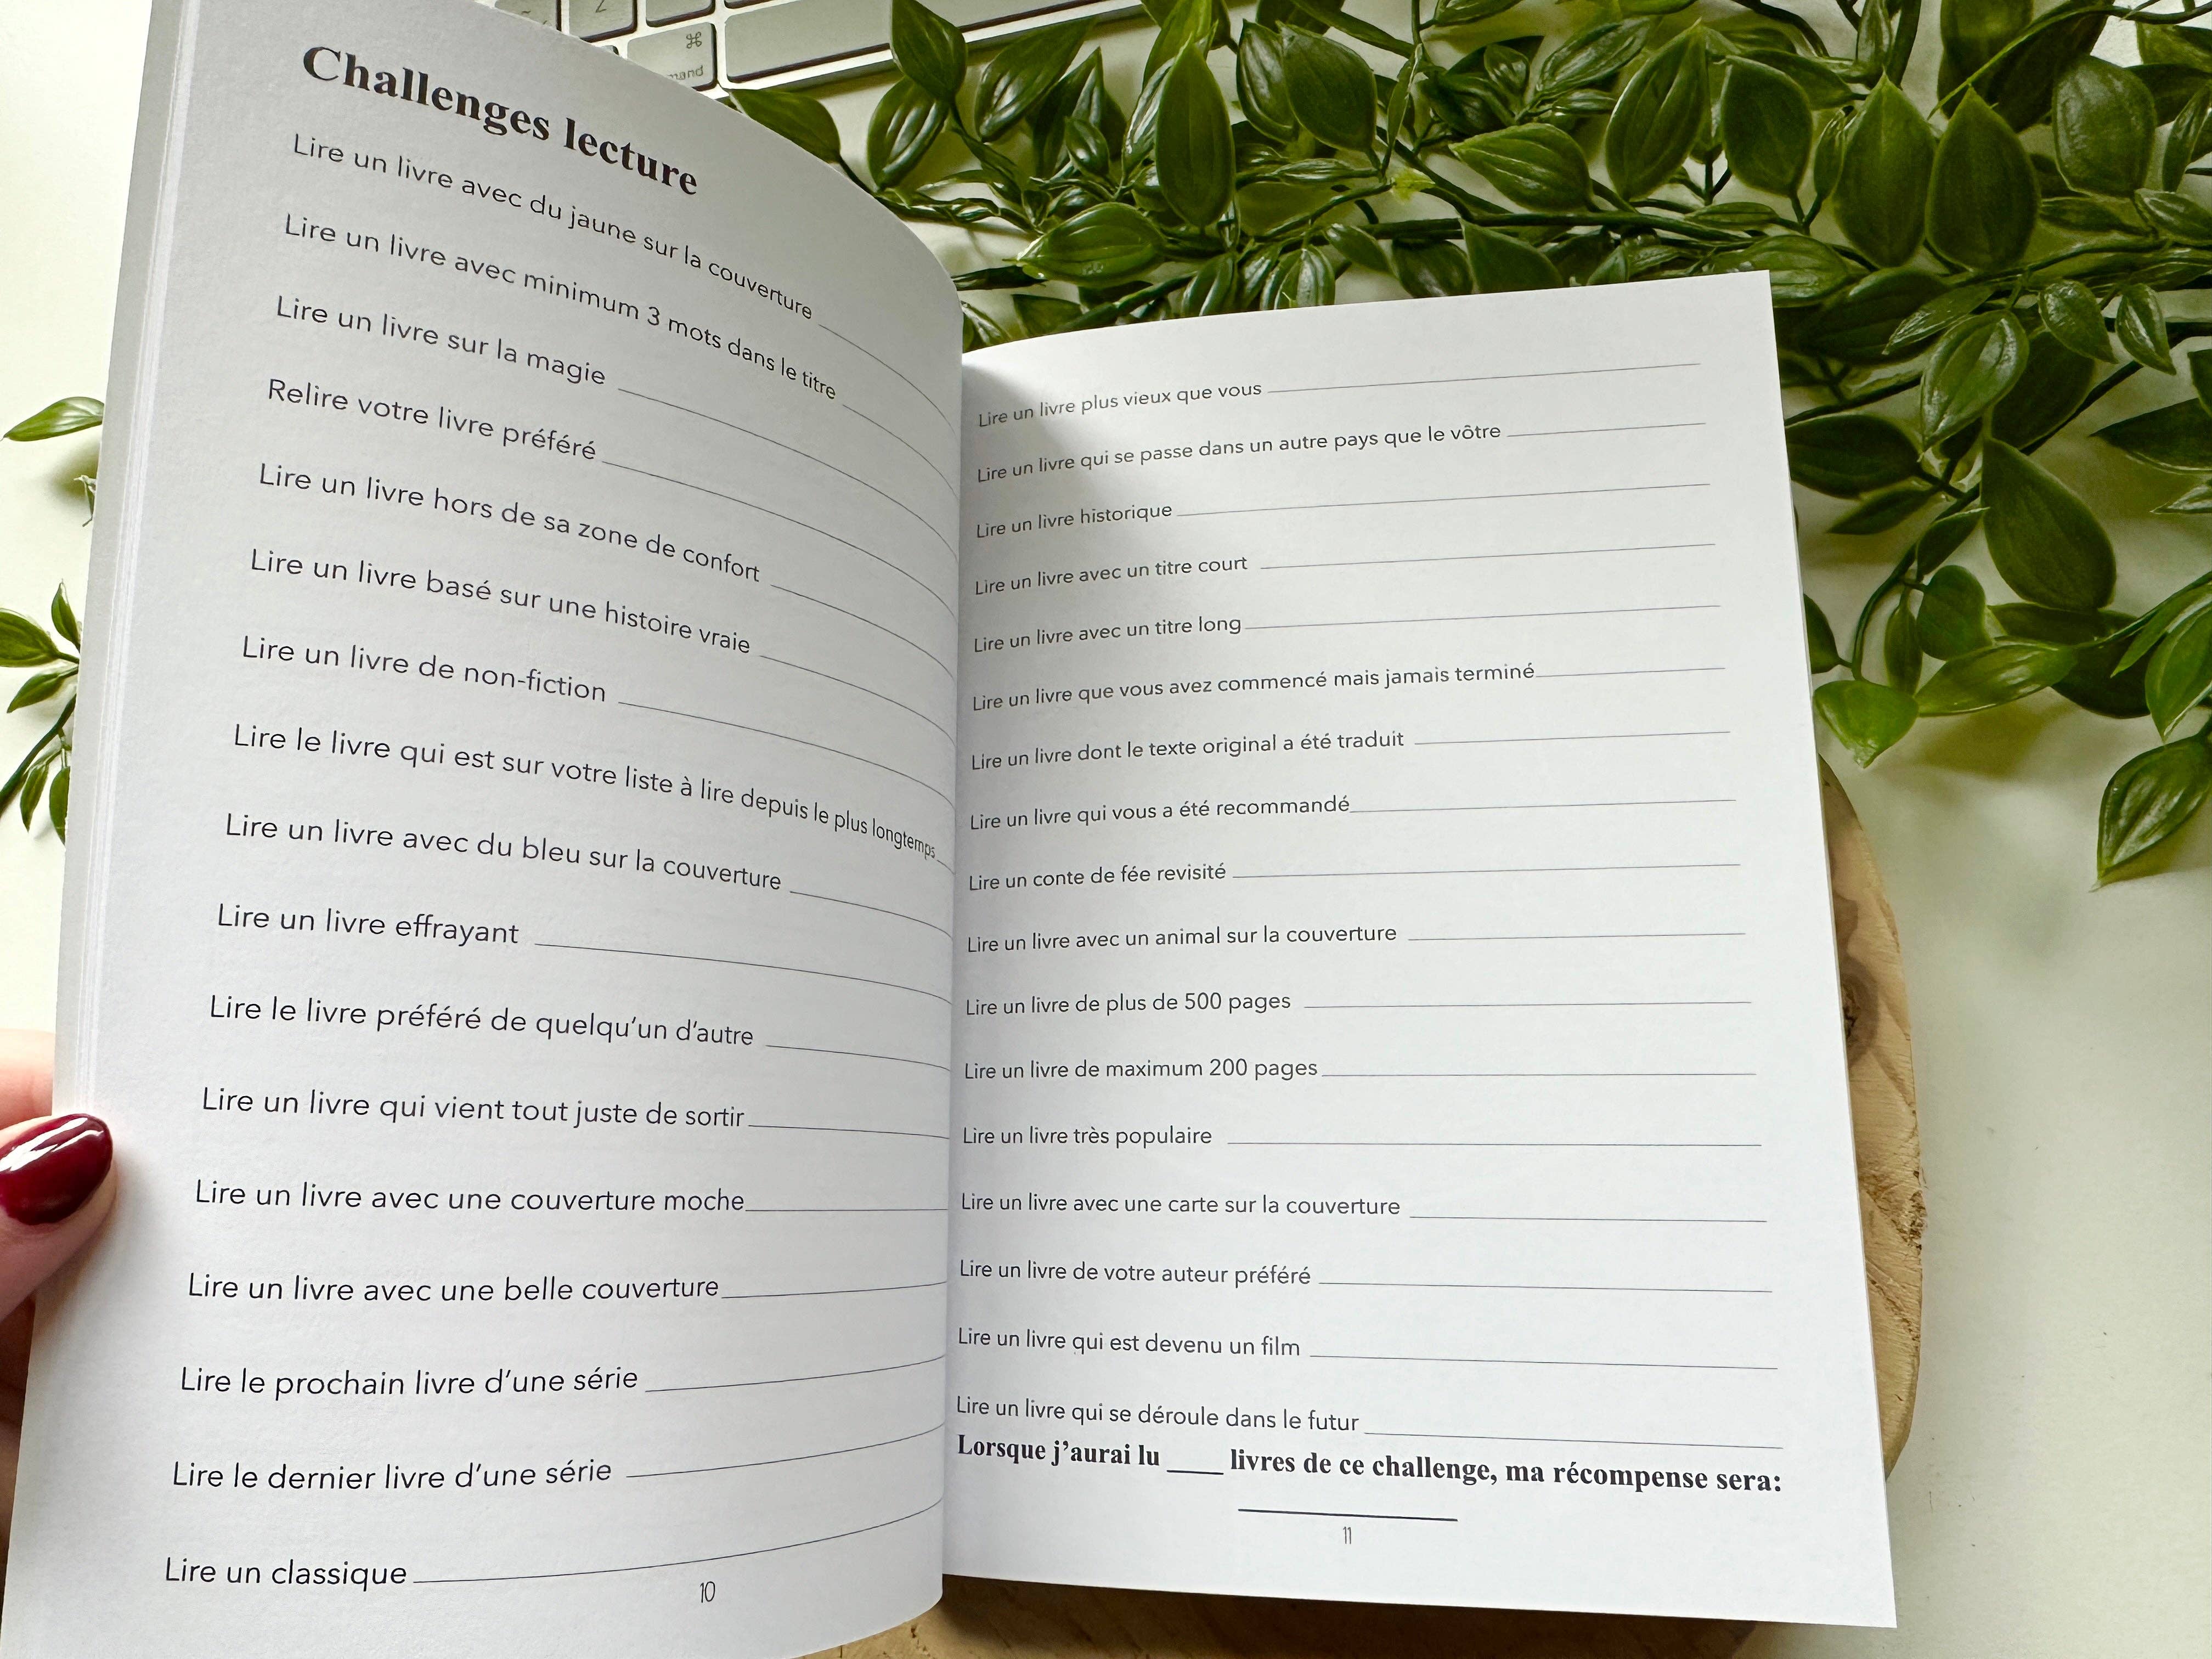 ⌘
mand
Challenges lecture
Lire un livre avec du jaune sur la couverture
Lire un livre avec minimum 3 mots dans le titre
Lire un livre sur la magie
Relire votre livre préféré
Lire un livre hors de sa zone de confort
Lire un livre basé sur une histoire vraie
Lire un livre de non-fiction
Lire le livre qui est sur votre liste à lire depuis le plus longtemps
Lire un livre avec du bleu sur la couverture
Lire un livre effrayant
Lire le livre préféré de quelqu'un d'autre
Lire un livre qui vient tout juste de sortir
Lire un livre avec une couverture moche
Lire un livre avec une belle couverture
Lire le prochain livre d'une série
Lire le dernier livre d'une série
Lire un classique
10
Lire un livre plus vieux que vous
Lire un livre qui se passe dans un autre pays que le vôtre
Lire un livre historique
Lire un livre avec un titre court
Lire un livre avec un titre long
Lire un livre que vous avez commencé mais jamais terminé
Lire un livre dont le texte original a été traduit
Lire un livre qui vous a été recommandé
Lire un conte de fée revisité
Lire un livre avec un animal sur la couverture
Lire un livre de plus de 500 pages
Lire un livre de maximum 200 pages
Lire un livre très populaire
Lire un livre avec une carte sur la couverture
Lire un livre de votre auteur préféré
Lire un livre qui est devenu un film
Lire un livre qui se déroule dans le futur
Lorsque j'aurai lu ____ livres de ce challenge, ma récompense sera:
11